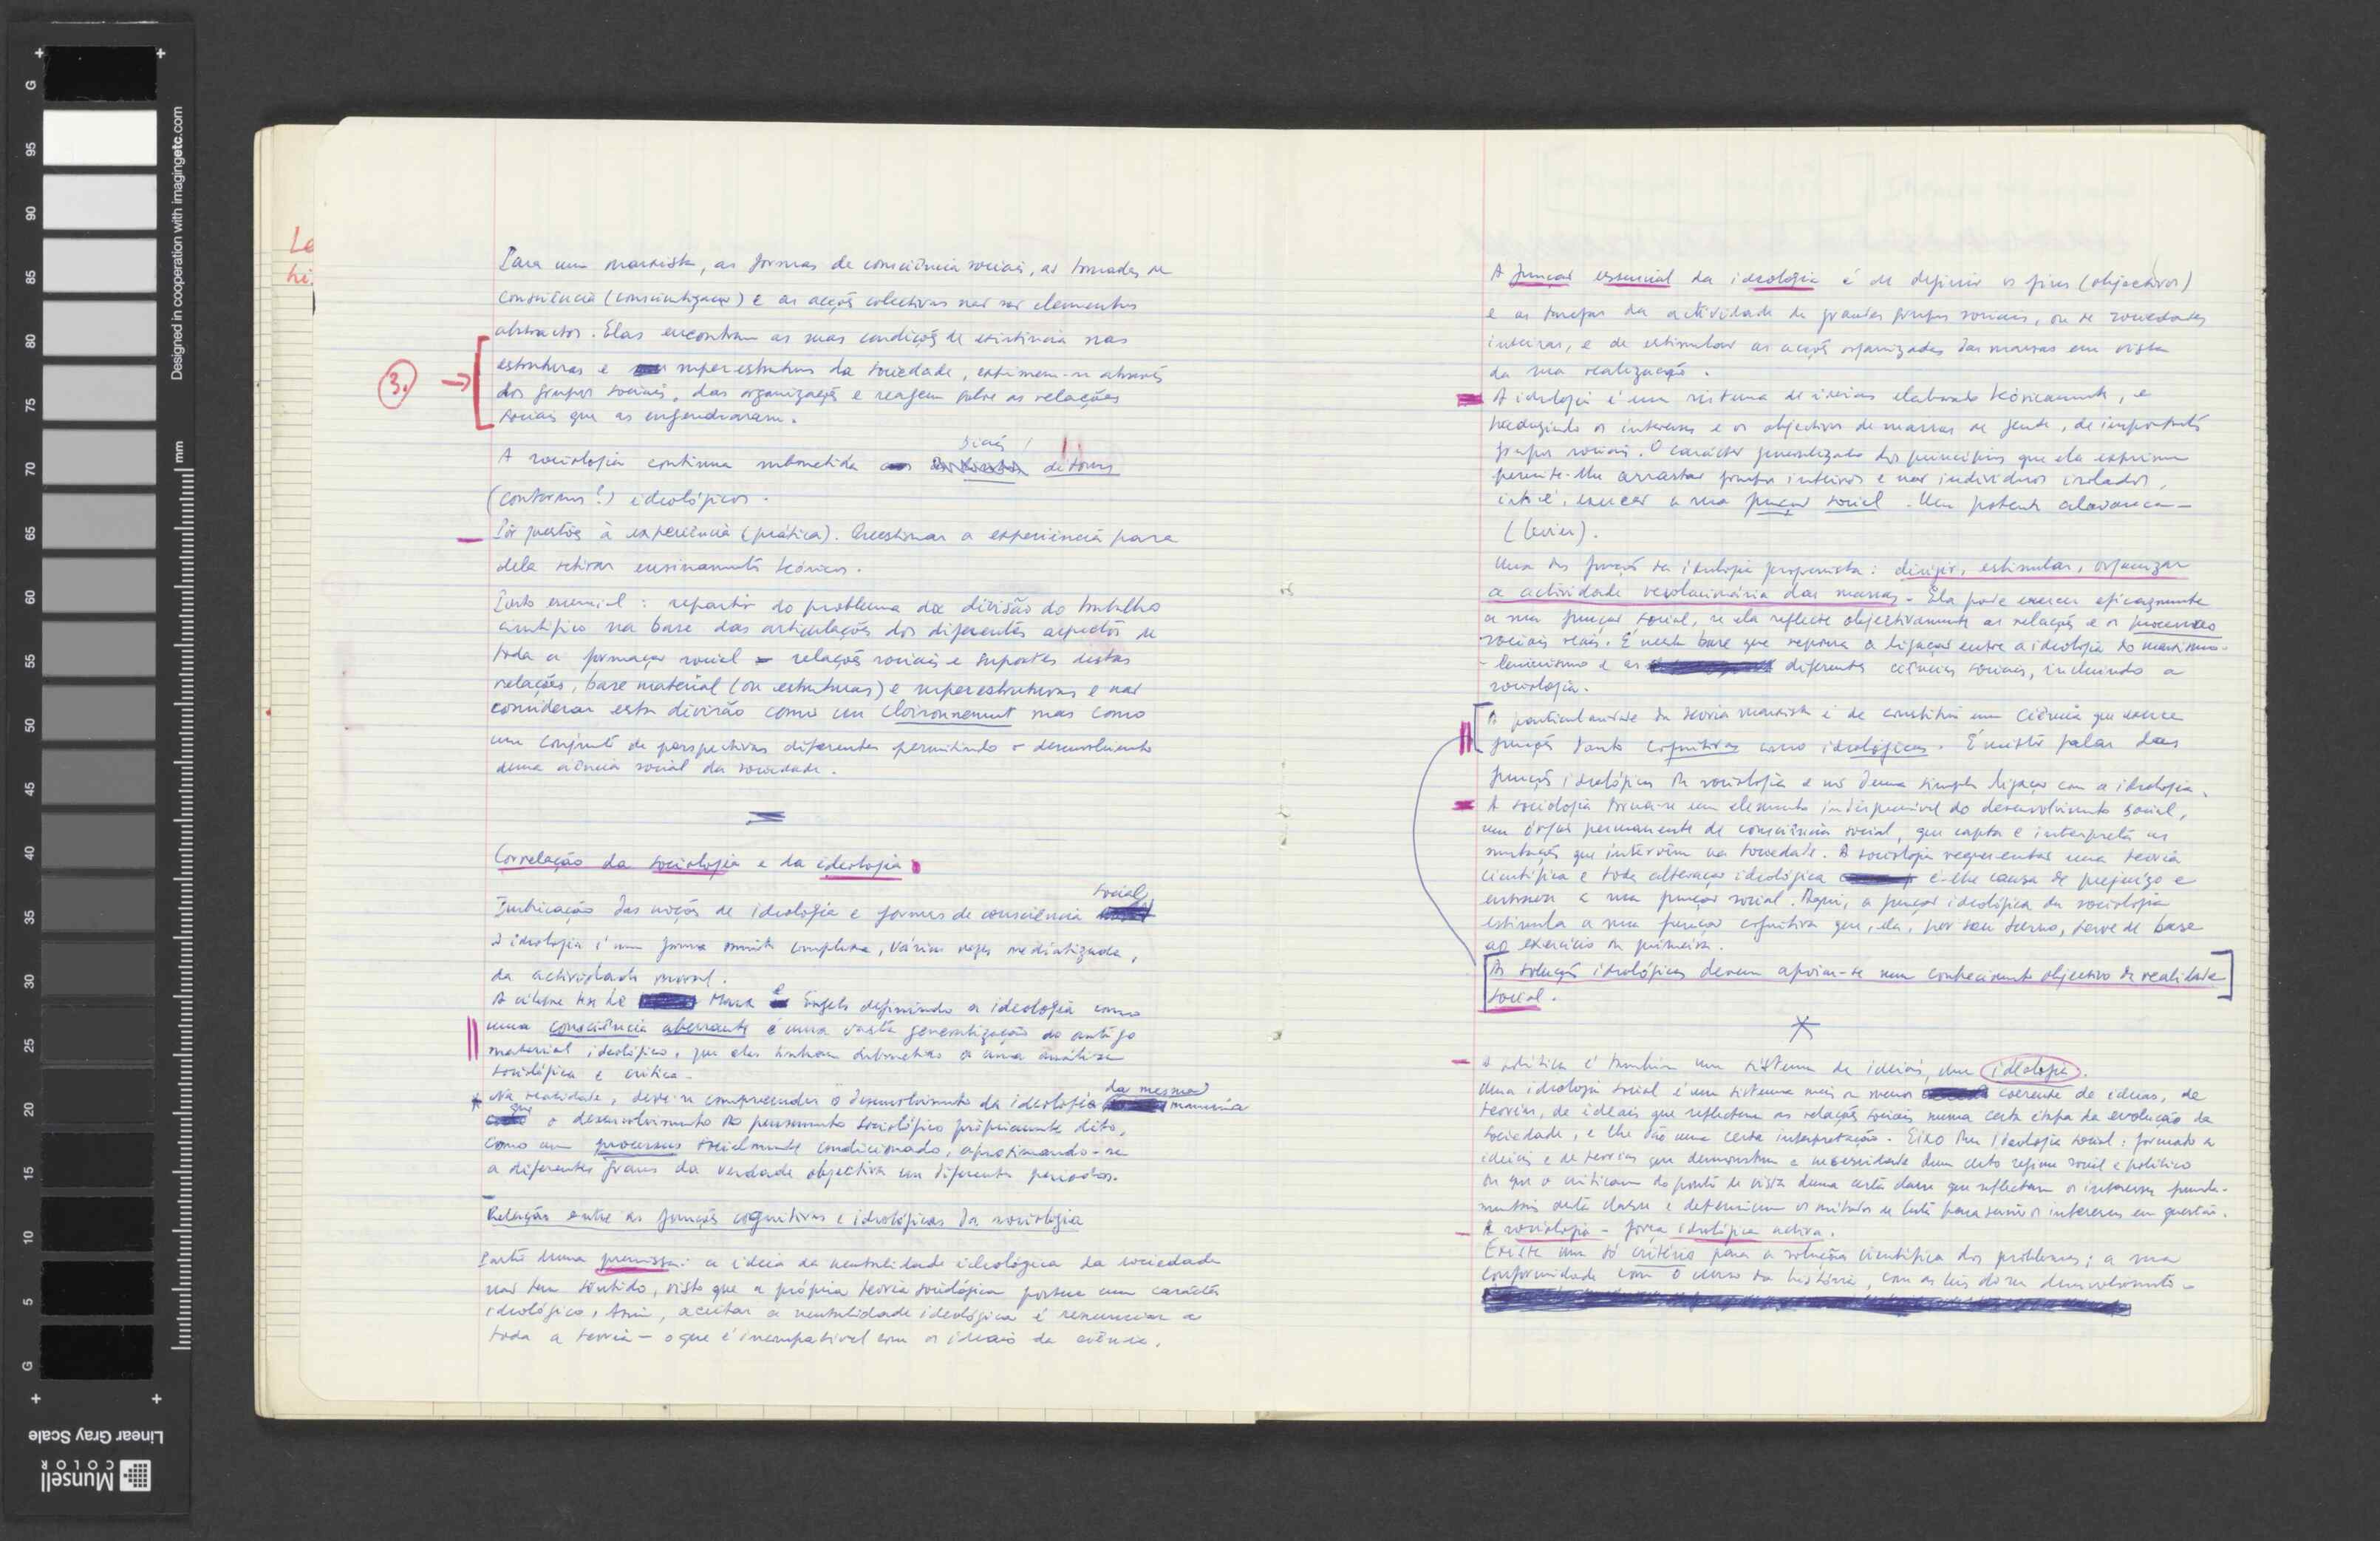 Para um marxista, as formas de consciência sociais, as tomadas de
consciência (conscientização) e as acções colectivas não são elementos
abstractos. Elas encontram as suas condições de existência nas
estruturas e superestruturas da sociedade, exprimem-se através
dos grupos sociais, das organizações e reagem sobre as relações
sociais que as engendraram.
3.
A sociologia continua submetida détours
(contornos?) ideológicos.
Pôr questões à experiência (prática). Questionar a experiência para
dela retirar ensinamentos teóricos.
Ponto essencial: repartir do problema da divisão do trabalho
científico na base das articulações dos diferentes aspectos de
toda a formação social - relações sociais e suportes destas
relações, base material (ou estruturas) e superestruturas e não
considerar esta divisão como um cloisonnement mas como
um conjunto de perspectivas diferentes permitindo o desenvolvimento
duma ciência social da sociedade.
Correlação da sociologia e da ideologia
Imbricação das noções de ideologia e formas de consciência social
A ideologia é uma forma muito complexa, várias vezes mediatizada,
da actividade
A célebre tese de Marx e Engels definindo a ideologia como
uma consciência aberrante é uma vasta generalização do antigo
material ideológico, que eles tinham submetido a uma análise
sociológica e crítica.
* Na realidade, deve-se compreender o desenvolvimento da ideologia da mesma maneira
que o desenvolvimento do pensamento sociológico propriamente dito,
como um processus socialmente condicionado, aproximando-se
a diferentes graus da verdade objectiva em diferentes períodos.
Relações entre as funções cognitivas e ideológicas da sociologia
Parte duma premissa: a ideia da neutralidade ideológica da sociedade
não tem sentido, visto que a própria teoria sociológica possui um carácter
ideológico. Assim, aceitar a neutralidade ideológica é renunciar a
toda a teoria - o que é incompatível com os ideais da ciência.
A função essencial da ideologia é de definir os fins (objectivos)
e as tarefas da actividade de grandes grupos sociais, ou de sociedades
inteiras, e de estimular as acções organizadas das massas em vista
da sua realização.
A ideologia é um sistema de ideias elaborado teòricamente, e
traduzindo os interesses e os objectivos de massas de gente, de importantes
grupos sociais. O carácter generalizado dos princípios que ela exprime
permite-lhe arrastar grupos inteiros e não indivíduos isolados,
isto é, exercer a sua função social. Uma potente alavanca
(levier).
Uma das funções da ideologia progressista: dirigir, estimular, organizar
a actividade revolucionária das massas. Ela pode exercer eficazmente
a sua função social, se ela reflecte objectivamente as relações e os processos
sociais reais. É nesta base que repousa a ligação entre a ideologia do marxismo-
-leninismo e as diferentes ciências sociais, incluindo a
sociologia.
A particularidade da teoria marxista é de constituir uma ciência que exerce
funções tanto cognitivas como ideológicas. É mister falar das
funções ideológicas da sociologia e não duma simples ligação com a ideologia.
A sociologia torna-se um elemento indispensável do desenvolvimento social,
um órgão permanente de consciência social, que capta e interpreta as
mutações que intervêm na sociedade. A sociologia representa uma teoria
científica e toda alteração ideológica é-lhe causa de prejuízo e
a sua função social. Aqui, a função ideológica da sociologia
estimula a sua função cognitiva que, ela, por seu turno, serve de base
ao exercício da primeira.
As soluções ideológicas devem apoiar-se num conhecimento objectivo da realidade
social.
A política é também um sistema de ideias, uma ideologia.
Uma ideologia social é um sistema mais ou menos coerente de ideias, de
teorias, de ideais que reflectem as relações sociais numa certa etapa da evolução da
sociedade, e lhe dão uma certa interpretação. Eixo duma ideologia social: formado de
ideias e de teorias que demonstram a necessidade dum certo regime social e político
ou que o criticam do ponto de vista duma certa classe que reflectem os interesses funda-
mentais desta classe e determinam os métodos de luta para servir os interesses em questão.
A sociologia - força ideológica activa.
Existe um só critério para a solução científica dos problemas: a sua
conformidade com o curso da história, com as leis do seu desenvolvimento.